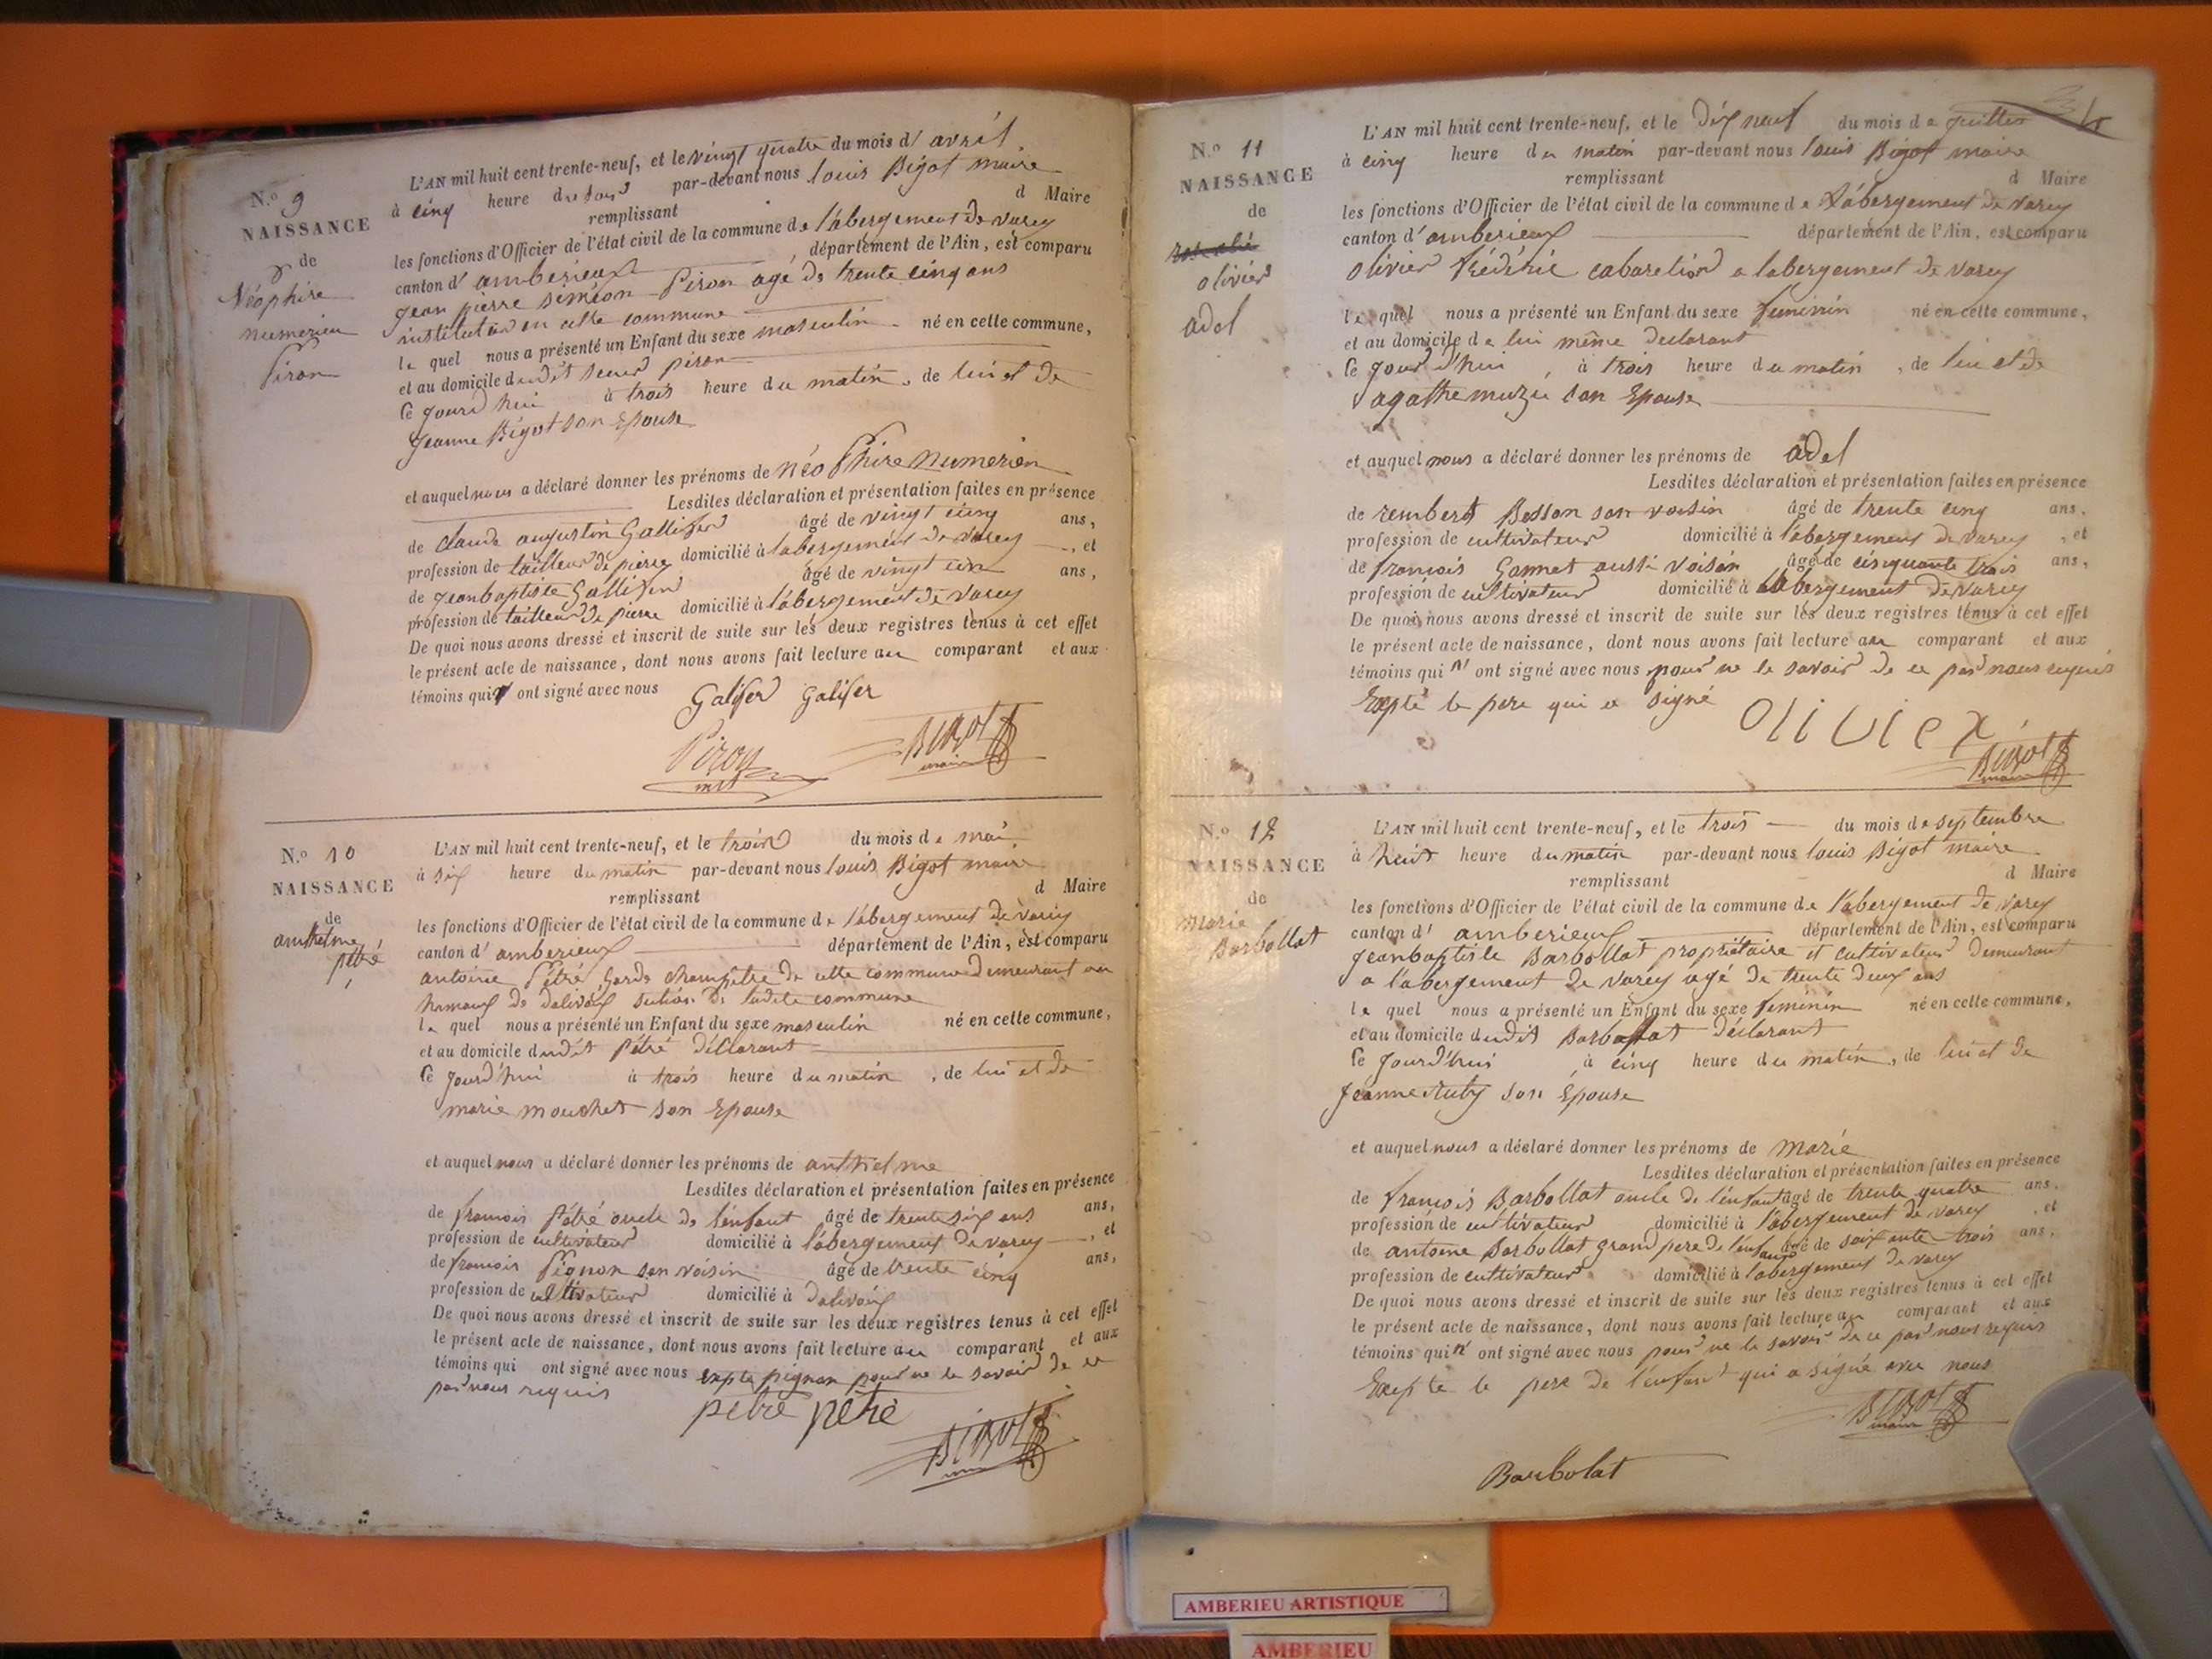 N.o 9
NAISSANCE
de
Néophire
numerien
Piron
L'AN mil huit cent trente-neuf, et le vingt quatre du mois d' avril
à cinq heure du soir par-devant nous louis Bigot maire
remplissant d Maire
les fonctions d'Officier de l'état civil de la commune de l'abergement de varey
canton d' amberieux département de l'Ain, est comparu
jean pierre siméon Piron agé de trente cinq ans
instituteur en cette commune
le quel nous a présenté un Enfant du sexe masculin né en cette commune,
et au domicile dudit sieur piron
Ce jourd'hui à trois heure du matin, de lui et de
Jeanne Bigot son Epouse
et auquel nous a déclaré donner les prénoms de néo Phire numerien
Lesdites déclaration et présentation faites en présence
de claude augustin Gallifer âgé de vingt cinq ans,
profession de tailleur de pierre domicilié à l'abergement de varey, et
de jeanbaptiste Gallifer âgé de vingt un ans,
profession de tailleur de pierre domicilié à l'abergement de varey
De quoi nous avons dressé et inscrit de suite sur les deux registres tenus à cet effet
le présent acte de naissance, dont nous avons fait lecture au comparant et aux
témoins qui ont signé avec nous
Galifer Galifer
Piron
inst
BIGOT
maire
N.o 10
NAISSANCE
de
anthelme
pétré
L'AN mil huit cent trente-neuf, et le trois du mois de mai
à six heure du matin par-devant nous louis Bigot maire
remplissant d Maire
les fonctions d'Officier de l'état civil de la commune de l'abergement de varey
canton d' amberieux département de l'Ain, est comparu
antoine Pétré Garde champêtre de cette commune demeurant au
hameux de dalivoix section de ladite commune
le quel nous a présenté un Enfant du sexe masculin né en cette commune,
et au domicile dudit Pétré déclarant
Ce jourd'hui à trois heure du matin, de lui et de
marie mouchet son Epouse
et auquel nous a déclaré donner les prénoms de anthelme
Lesdites déclaration et présentation faites en présence
de francois Pétré oncle de l'enfant âgé de trente six ans ans,
profession de cultivateur domicilié à l'abergement de varey, et
de francois Pignon son voisin âgé de trente cinq ans,
profession de cultivateur domicilié à dalivoix
De quoi nous avons dressé et inscrit de suite sur les deux registres tenus à cet effet
le présent acte de naissance, dont nous avons fait lecture au comparant et aux
témoins qui ont signé avec nous expté pignon pour ne le savoir de ce
par nous requis
pétré pétré
BIGOT
maire
N.o 11
NAISSANCE
de
olivier
adel
L'AN mil huit cent trente-neuf, et le dix neuf du mois de juillet
à cinq heure du matin par-devant nous louis Bigot maire
remplissant d Maire
les fonctions d'Officier de l'état civil de la commune de L'abergement de varey
canton d' amberieux département de l'Ain, est comparu
olivier frédéric cabaretier a labergement de varey
le quel nous a présenté un Enfant du sexe feminin né en cette commune,
et au domicile de lui même declarant
Ce jourd'hui, à trois heure du matin, de lui et de
agathe muzy son Epouse
et auquel nous a déclaré donner les prénoms de adel
Lesdites déclaration et présentation faites en présence
de rembert Besson son voisin âgé de trente cinq ans,
profession de cultivateur domicilié à l'abergement de varey, et
de francois Gannet aussi voisin âgé de cinquante trois ans,
profession de cultivateur domicilié à labergement de varey
De quoi nous avons dressé et inscrit de suite sur les deux registres tenus à cet effet
le présent acte de naissance, dont nous avons fait lecture au comparant et aux
témoins qui n' ont signé avec nous pour ne le savoir de ce par nous requis
Exepté le pere qui a signé
olivier
BIGOT
maire
N.o 12
NAISSANCE
de
Marie
Barbollat
L'AN mil huit cent trente-neuf, et le trois du mois de septembre
à huit heure du matin par-devant nous louis Bigot maire
remplissant d Maire
les fonctions d'Officier de l'état civil de la commune de l'abergement de varey
canton d' amberieux département de l'Ain, est comparu
jeanbaptiste Barbollat propriétaire et cultivateur demeurant
a l'abergement de varey agé de trente deux ans
le quel nous a présenté un Enfant du sexe feminin né en cette commune,
et au domicile dudit Barbollat déclarant
Ce jourd'hui à cinq heure du matin, de lui et de
Jeanne son Epouse
et auquel nous a déclaré donner les prénoms de marie
Lesdites déclaration et présentation faites en présence
de francois Barbollat oncle de l'enfant âgé de trente quatre ans,
profession de cultivateur domicilié à l'abergement de varey, et
de antoine Barbollat grand pere de l'enfant âgé de soixante trois ans,
profession de cultivateur domicilié à labergement de varey
De quoi nous avons dressé et inscrit de suite sur les deux registres tenus à cet effet
le présent acte de naissance, dont nous avons fait lecture au comparant et aux
témoins qui n' ont signé avec nous pour ne le savoir de ce par nous requis
Exepté le pere de l'enfant qui a signé avec nous
BIGOT
maire
Barbolat
AMBERIEU ARTISTIQUE
AMBERIEU